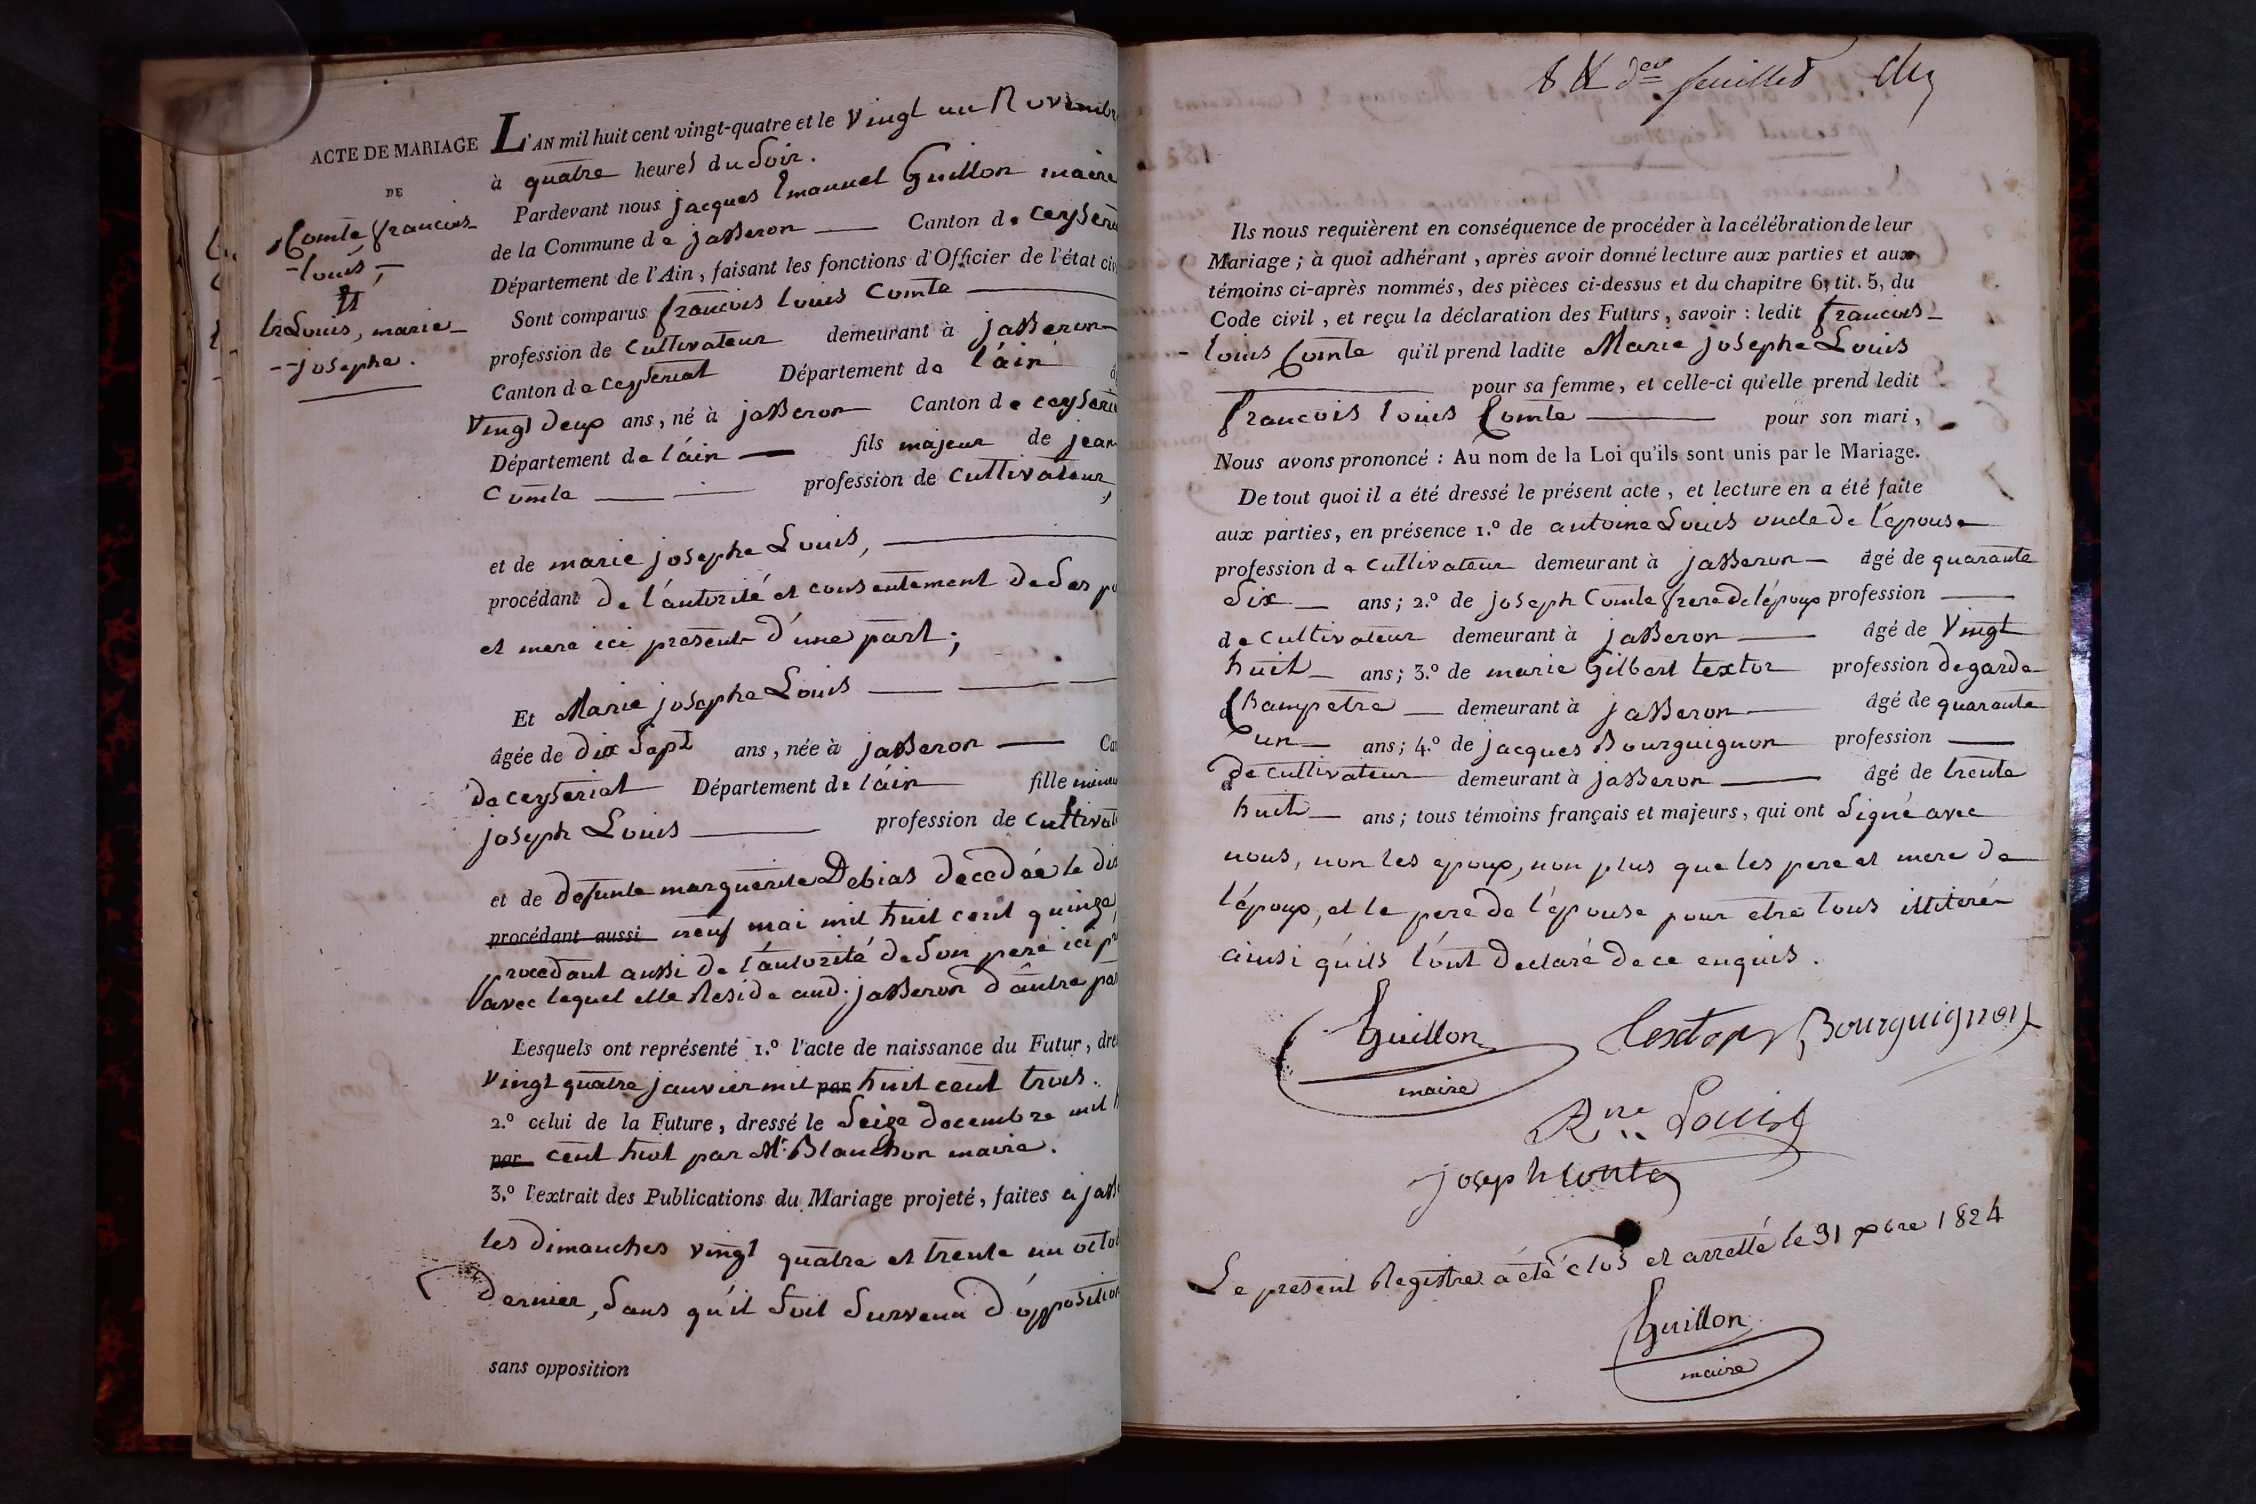 ACTE DE MARIAGE
DE
Comte francois
- louis, -
Et
Louis, marie -
- - josephe.
L'AN mil huit cent vingt-quatre et le Vingt un Novembre
à quatre heures du Soir.
Pardevant nous jacques Emanuel Guillon maire
de la Commune de jasseron Canton de Ceyseria
Département de l'Ain, faisant les fonctions d'Officier de l'état civ
Sont comparus francois louis Comte
profession de Cultivateur demeurant à jasseron
Canton de ceyseriat Département de l'ain
Vingt deux ans, né à jasseron Canton de ceyseria
Département de l'ain fils majeur de jean
Comte profession de cultivateur,
et de marie josephe Louis,
procédant de l'autorité et consentement de Ses
et mere ici present d'une part;
Et Marie josephe Louis
âgée de dix Sept ans, née à jasseron
de ceyseriat Département de l'ain fille
joseph Louis profession de Cultivat
et de defunte marguerite Debias decedée le dix
procédant aussi neuf mai mil huit cent quinze,
procedant aussi de l'autorité de Son pere ici
avec lequel elle Reside aud. jasseron d'autre par
Lesquels ont représenté 1.º l'acte de naissance du Futur, dre
Vingt quatre janvier mil par huit cent trois.
2.º celui de la Future, dressé le Seize decembre mil h
par cent huit par Mr. Blanchon maire.
3.º l'extrait des Publications du Mariage projeté, faites à jass
les dimanches vingt quatre et trente un octob
dernier, Sans qu'il Soit Survenu d'opposition
sans opposition
feuillet
Ils nous requièrent en conséquence de procéder à la célébration de leur
Mariage; à quoi adhérant, après avoir donné lecture aux parties et aux
témoins ci-après nommés, des pièces ci-dessus et du chapitre 6, tit. 5, du
Code civil, et reçu la déclaration des Futurs, savoir: ledit francois -
- louis Comte qu'il prend ladite Marie josephe Louis
pour sa femme, et celle-ci qu'elle prend ledit
francois louis Comte pour son mari,
Nous avons prononcé: Au nom de la Loi qu'ils sont unis par le Mariage.
De tout quoi il a été dressé le présent acte, et lecture en a été faite
aux parties, en présence 1.º de antoine Louis oncle de l'epouse
profession de Cultivateur demeurant à jasseron âgé de quarante
Six ans; 2.º de joseph Comte frere de l'époux profession
de Cultivateur demeurant à jasseron âgé de Vingt
huit ans; 3.º de marie Gilbert textor profession de garde
Champetre demeurant à jasseron âgé de quarante
un ans; 4.º de jacques Bourguignon profession
de cultivateur demeurant à jasseron âgé de trente
huit ans; tous témoins français et majeurs, qui ont Signé avec
nous, non les epoux, non plus que les pere et mere de
l'époux, et le pere de l'épouse pour etre tous illiterés
ainsi qu'ils l'ont declaré de ce enquis.
Guillon
maire
textor Bourguignon
Ane Louis
joseph Conte
Le present Registre a été clos et arretté le 31 xbre 1824
Guillon
maire